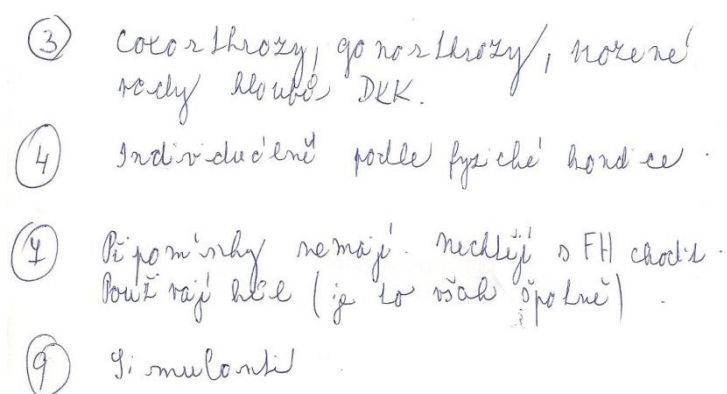 ③ Coxarthrozy, gonarthrozy, vrozené
vady kloubů DKK.
④ Individuálně podle fyzické kondice.
⑦ Připomínky nemají. Nechtějí s FH chodit.
Používají hole (je to však špatně).
⑨ Simulanti